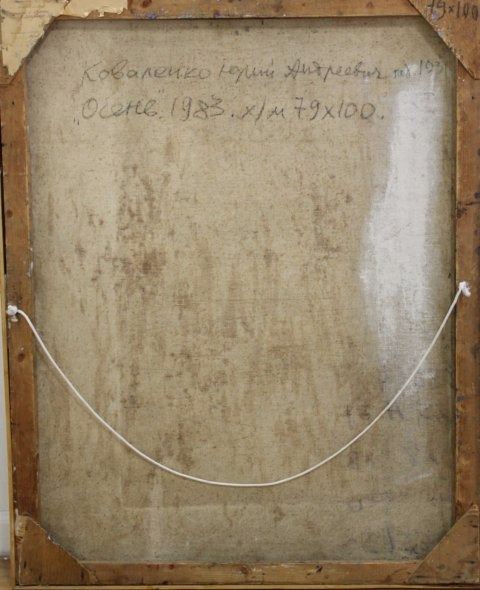 79х100
Коваленко Юрий Андреевич
"Осень" 1983. х/м 79х100.